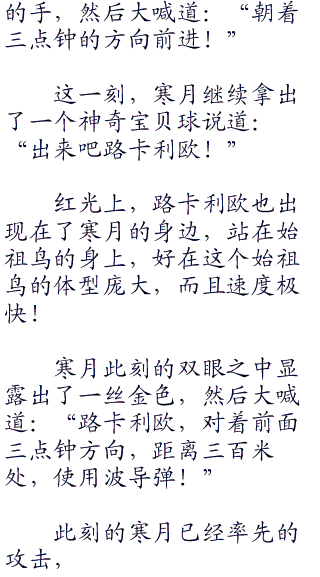 的手，然后大喊道：“朝着
三点钟的方向前进！”
这一刻，寒月继续拿出
了一个神奇宝贝球说道：
“出来吧路卡利欧！”
红光上，路卡利欧也出
现在了寒月的身边，站在始
祖鸟的身上，好在这个始祖
鸟的体型庞大，而且速度极
快！
寒月此刻的双眼之中显
露出了一丝金色，然后大喊
道：“路卡利欧，对着前面
三点钟方向，距离三百米
处，使用波导弹！”
此刻的寒月已经率先的
攻击，